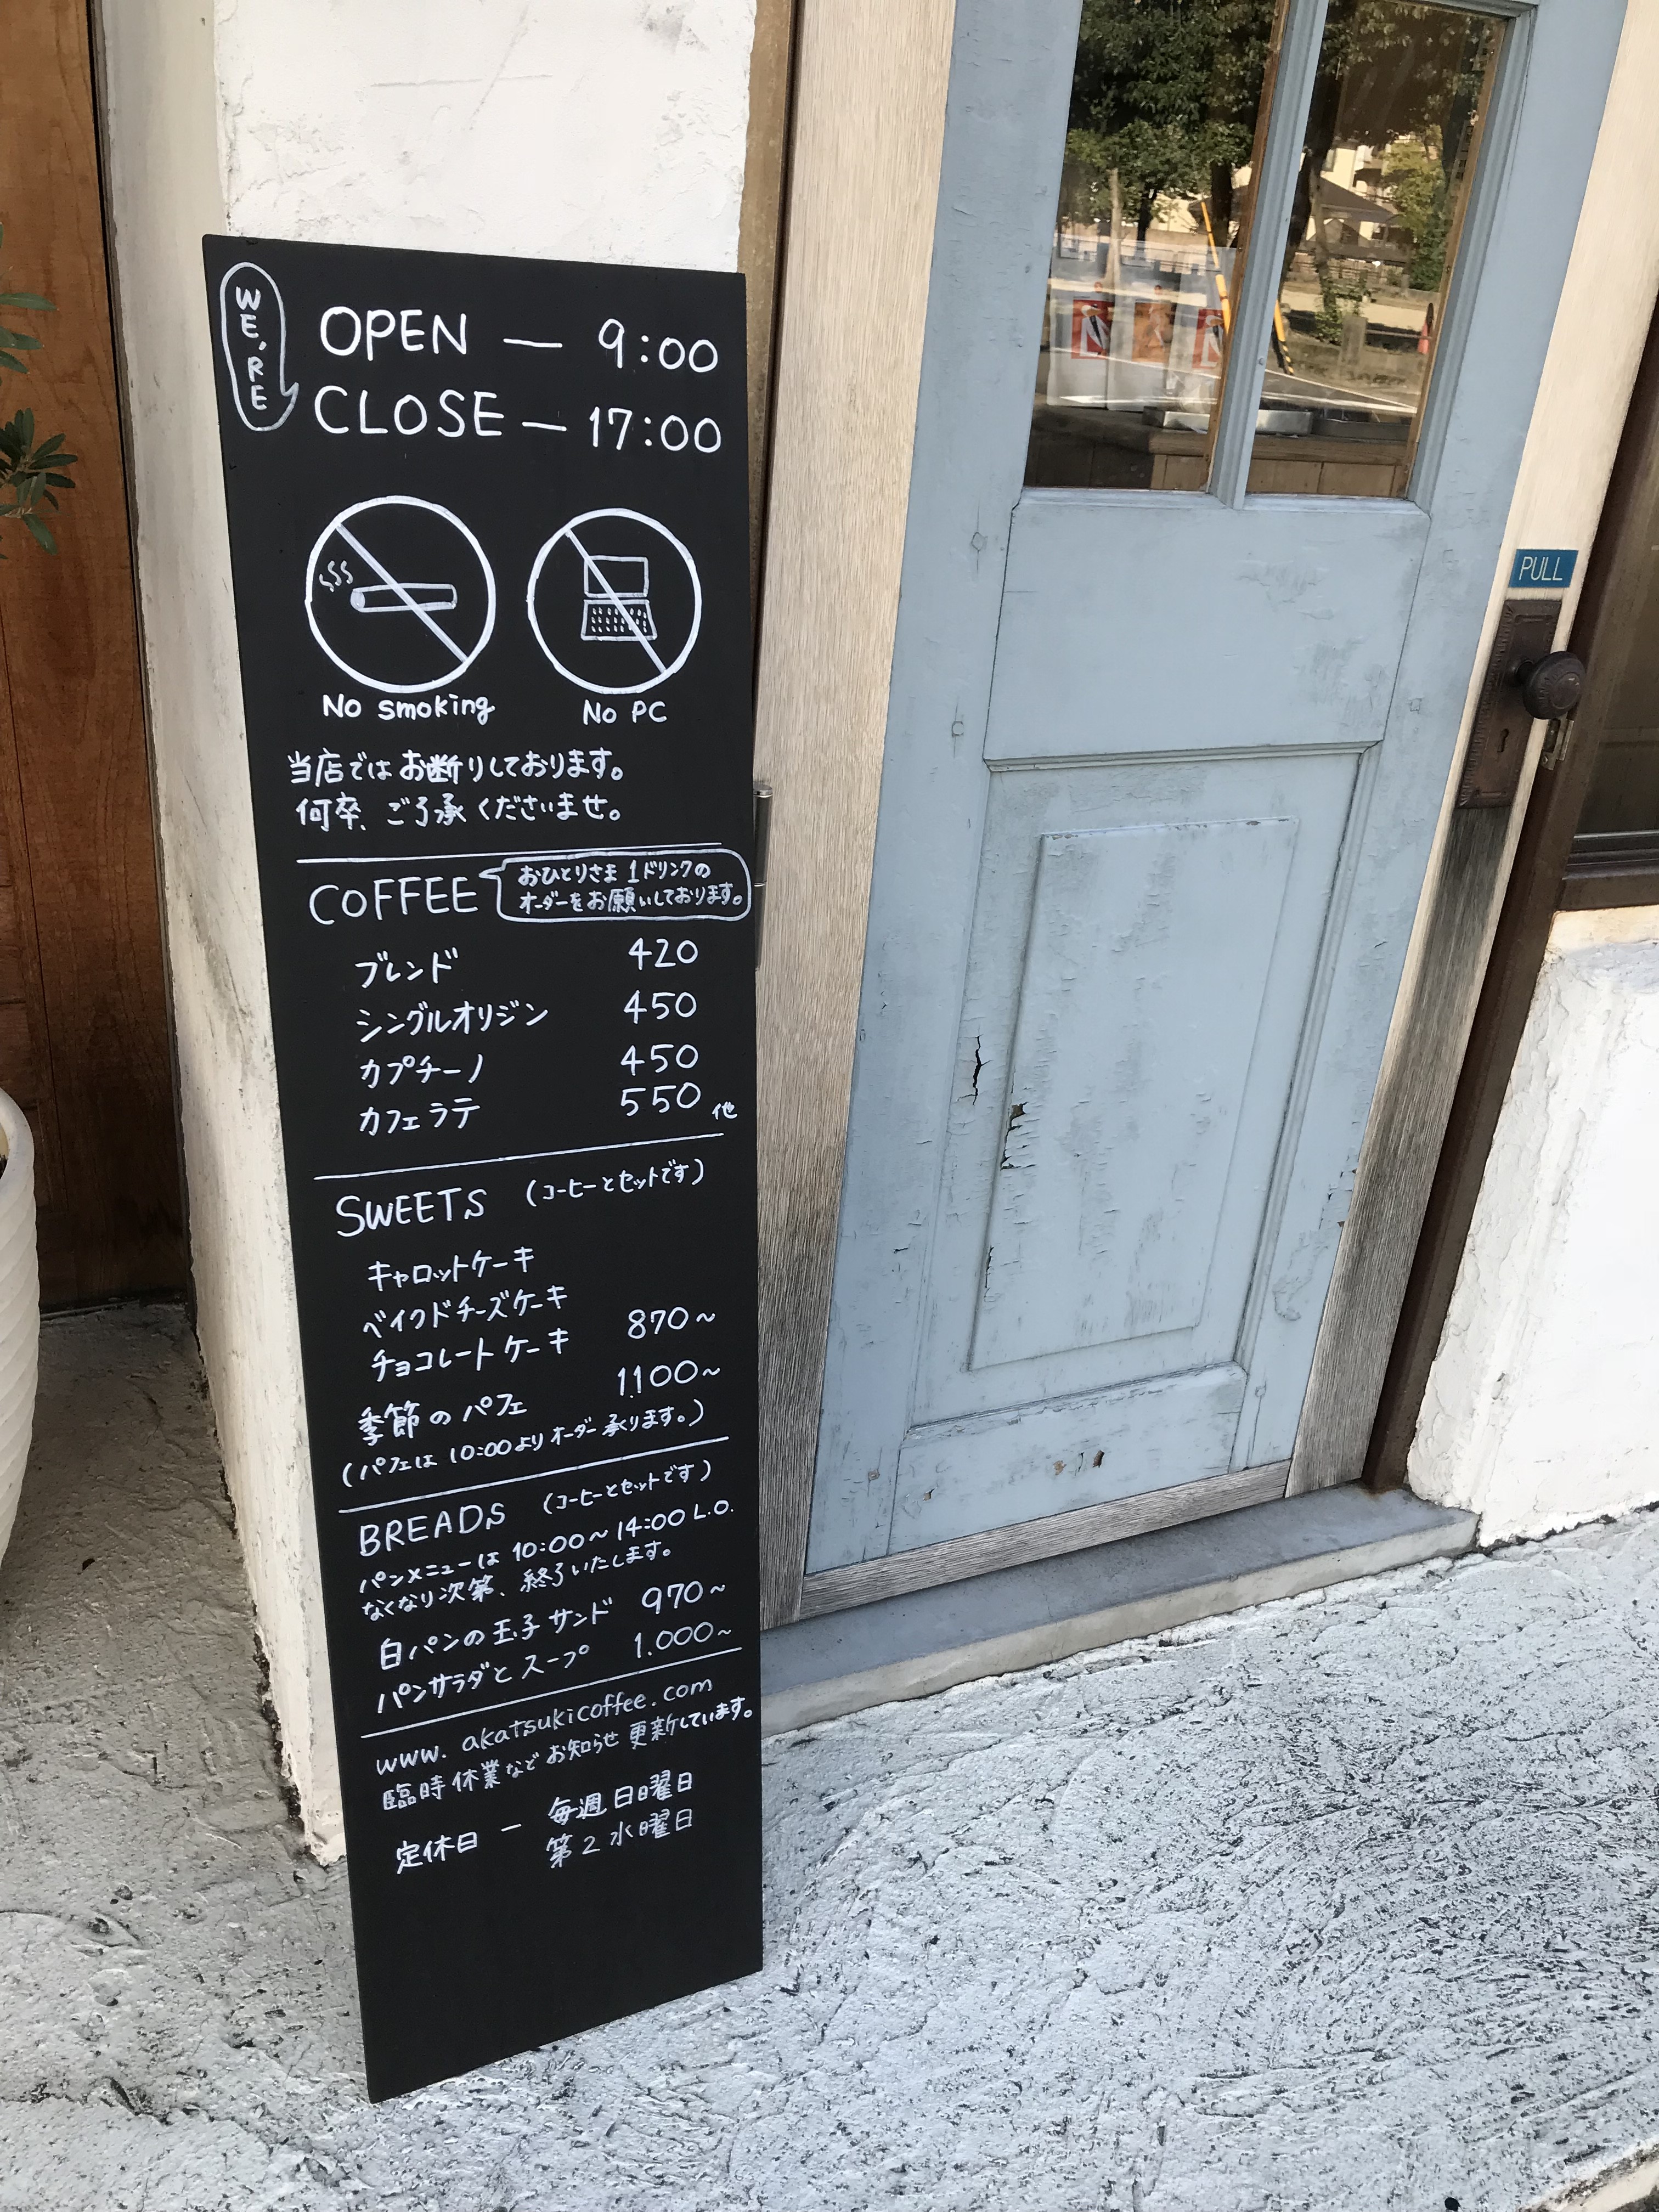 WE'RE
OPEN — 9:00
CLOSE — 17:00
No smoking
No PC
当店ではお断りしております。
何卒、ご了承くださいませ。
COFFEE
おひとりさま 1ドリンクの
オーダーをお願いしております。
ブレンド 420
シングルオリジン 450
カプチーノ 450
カフェラテ 550 他
SWEETS (コーヒーとセットです)
キャロットケーキ
ベイクドチーズケーキ
チョコレートケーキ 870~
季節のパフェ 1,100~
(パフェは 10:00より オーダー 承ります。)
BREADS (コーヒーとセットです)
パンメニューは 10:00~14:00 L.O.
なくなり次第、終了いたします。
白パンの玉子サンド 970~
パンサラダとスープ 1.000~
www.akatsukicoffee.com
臨時休業などお知らせ更新しています。
定休日 — 毎週日曜日
第2水曜日
PULL